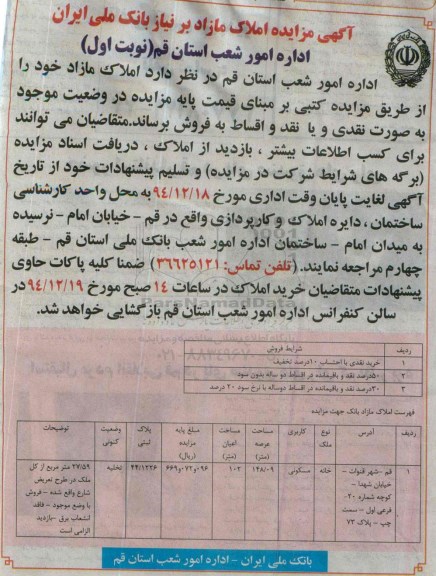 آگهی مزایده املاک مازاد بر نیاز بانک ملی ایران
اداره امور شعب استان قم(نوبت اول)
اداره امور شعب استان قم در نظر دارد املاک مازاد خود را
از طریق مزایده کتبی بر مبنای قیمت پایه مزایده در وضعیت موجود
به صورت نقدی و یا نقد و اقساط به فروش برساند.متقاضیان می توانند
برای کسب اطلاعات بیشتر ، بازدید از املاک ، دریافت اسناد مزایده
(برگه های شرایط شرکت در مزایده) و تسلیم پیشنهادات خود از تاریخ
آگهی لغایت پایان وقت اداری مورخ ۹۴/۱۲/۱۸ به محل واحد کارشناسی
ساختمان ، دایره املاک و کارپردازی واقع در قم - خیابان امام - نرسیده
به میدان امام - ساختمان اداره امور شعب بانک ملی استان قم - طبقه
چهارم مراجعه نمایند. (تلفن تماس: ۳۶۶۲۵۱۲۱) ضمنا کلیه پاکات حاوی
پیشنهادات متقاضیان خرید املاک در ساعات ۱۴ صبح مورخ ۹۴/۱۲/۱۹ در
سالن کنفرانس اداره امور شعب استان قم بازگشایی خواهد شد.
ردیف شرایط فروش
۱ خرید نقدی با احتساب ۱۰درصد تخفیف
۲ ۵۰درصد نقد و باقیمانده در اقساط دو ساله بدون سود
۳ ۳۰درصد نقد و باقیمانده در اقساط دوساله با نرخ سود ۲۰ درصد
فهرست املاک مازاد بانک جهت مزایده
ردیف آدرس نوع ملک کاربری مساحت عرصه (متر) مساحت اعیان (متر) مبلغ پایه مزایده (ریال) پلاک ثبتی وضعیت کنونی توضیحات
۱ قم -شهر قنوات - خیابان شهدا - کوچه شماره ۲۰- فرعی اول - سمت چپ - پلاک ۷۳ خانه مسکونی ۱۴۸/۰۹ ۱۰۲ ۶۶۹و۰۷۲و۰۹۶ ۲۴/۱۲۲۶ تخلیه ۲۷/۵۹ متر مربع از کل ملک در طرح تعریض شارع واقع شده - فروش با وضع موجود - فاقد انشعاب برق -بازدید الزامی است
بانک ملی ایران - اداره امور شعب استان قم